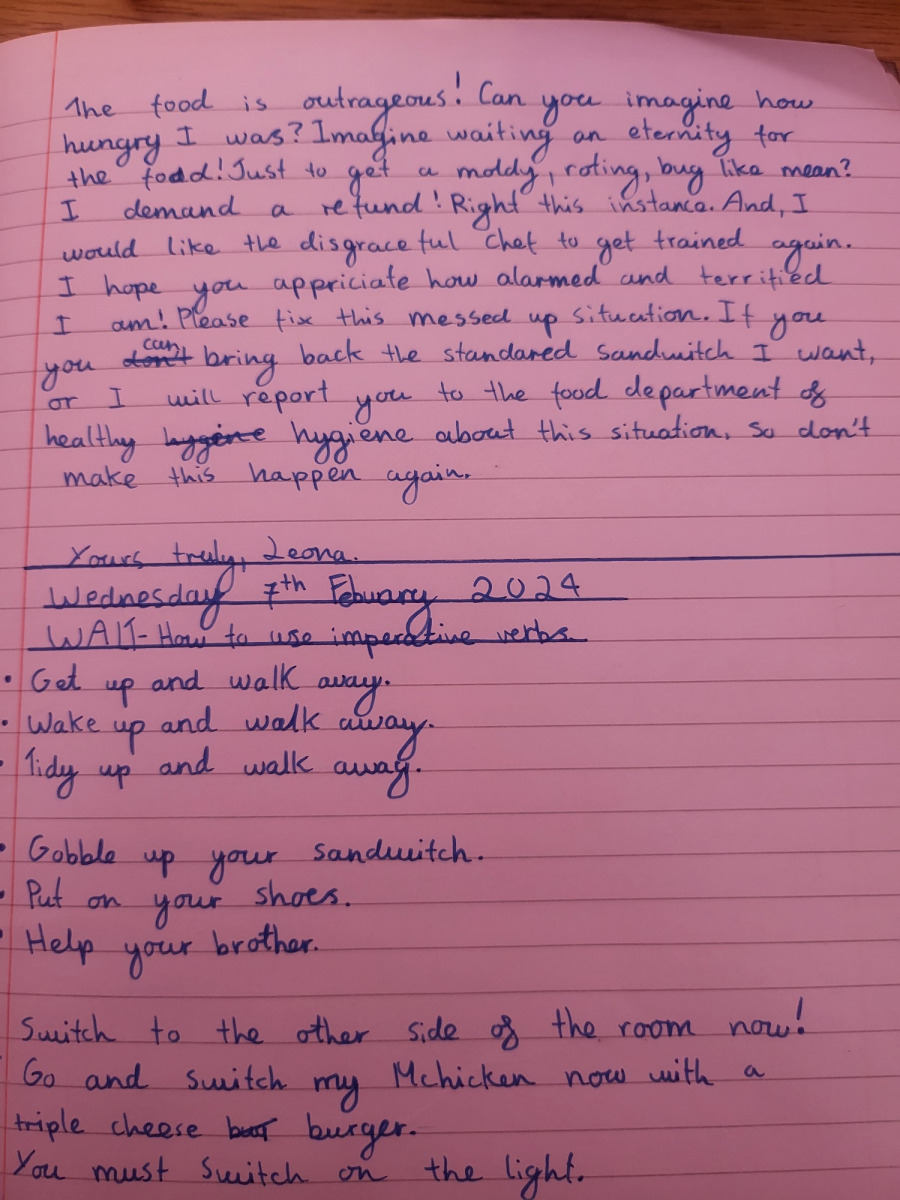 The food is outrageous! Can you imagine how
hungry I was? Imagine waiting an eternity for
the food! Just to get a moldy, roting, bug like mean?
I demand a refund! Right this instance. And, I
would like the disgraceful chef to get trained again.
I hope you appriciate how alarmed and terrified
I am! Please fix this messed up situation. If you
you don't can bring back the standared sandwitch I want,
or I will report you to the food department of
healthy hygene hygiene about this situation. So don't
make this happen again.
Yours truly, Leona.
Wednesday 7th Febuary 2024
WALT- How to use imperative verbs.
• Get up and walk away.
• Wake up and walk away.
• Tidy up and walk away.
• Gobble up your sandwitch.
• Put on your shoes.
• Help your brother.
Switch to the other side of the room now!
Go and switch my Mchicken now with a
triple cheese burger.
You must switch on the light.